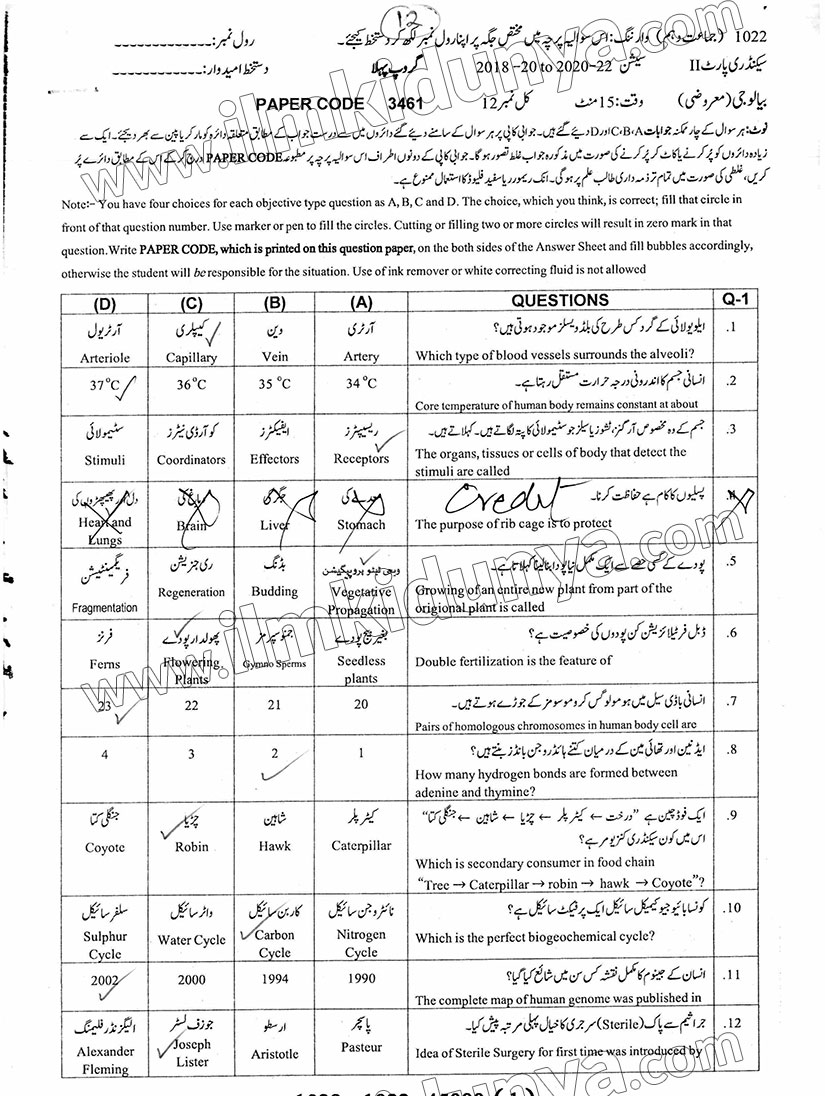 12
1022 (جماعت دہم) وارننگ: اس سوالیہ پرچہ میں مختص جگہ پر اپنا رول نمبر لکھ کر دستخط کیجئے۔ رول نمبر:
سیکنڈری پارٹ II سیشن 2018-20 to 2020-22 گروپ پہلا دستخط امیدوار:
بیالوجی (معروضی) وقت: 15 منٹ کل نمبر 12 PAPER CODE 3461
نوٹ: ہر سوال کے چار ممکنہ جوابات C، B، A اور D دیئے گئے ہیں۔ جوابی کاپی پر ہر سوال کے سامنے دیئے گئے دائروں میں سے درست جواب کے مطابق متعلقہ دائرہ کو مارکر یا پین سے بھر دیجئے۔ ایک سے
زیادہ دائروں کو پُر کرنے یا کاٹ کر پُر کرنے کی صورت میں مذکورہ جواب غلط تصور ہوگا۔ جوابی کاپی کے دونوں اطراف اس سوالیہ پرچہ پر مطبوعہ PAPER CODE درج کر کے اس کے مطابق دائرے پُر
کریں، غلطی کی صورت میں تمام تر ذمہ داری طالب علم پر ہوگی۔ انک ریموور یا سفید فلیوڈ کا استعمال ممنوع ہے۔
Note:- You have four choices for each objective type question as A, B, C and D. The choice, which you think, is correct; fill that circle in
front of that question number. Use marker or pen to fill the circles. Cutting or filling two or more circles will result in zero mark in that
question.Write PAPER CODE, which is printed on this question paper, on the both sides of the Answer Sheet and fill bubbles accordingly,
otherwise the student will be responsible for the situation. Use of ink remover or white correcting fluid is not allowed
(D) (C) (B) (A) QUESTIONS Q-1
آرٹریول کیپلری وین آرٹری ایلویولائی کے گرد کس طرح کی بلڈ ویسلز موجود ہوتی ہیں؟ .1
Arteriole Capillary Vein Artery Which type of blood vessels surrounds the alveoli?
37°C 36°C 35 °C 34 °C انسانی جسم کا اندرونی درجہ حرارت مستقل رہتا ہے۔ .2
Core temperature of human body remains constant at about
سٹیمولائی کوآرڈی نیٹرز ایفیکٹرز ریسیپٹرز جسم کے وہ مخصوص آرگنز، ٹشوز یا سیلز جو سٹیمولائی کا پتہ لگاتے ہیں۔ کہلاتے ہیں۔ .3
Stimuli Coordinators Effectors Receptors The organs, tissues or cells of body that detect the
stimuli are called
دل اور پھیپھڑوں کی دماغ کی جگر کی معدے کی Credit پسلیوں کا کام ہے حفاظت کرنا۔
Heart and Brain Liver Stomach The purpose of rib cage is to protect
Lungs
فریگمینٹیشن ری جنریشن بڈنگ ویجی ٹیٹو پروپیگیشن پودے کے کسی حصے سے ایک مکمل نیا پودا بنالینا کہلاتا ہے۔ .5
Fragmentation Regeneration Budding Vegetative Propagation Growing of an entire new plant from part of the
origional plant is called
فرنز پھولدار پودے جمنوسپرمز بغیر بیج پودے ڈبل فرٹیلائزیشن کن پودوں کی خصوصیت ہے؟ .6
Ferns Flowering Plants Gymno Sperms Seedless plants Double fertilization is the feature of
23 22 21 20 انسانی باڈی سیل میں ہومولوگس کروموسومز کے جوڑے ہوتے ہیں۔ .7
Pairs of homologous chromosomes in human body cell are
4 3 2 1 ایڈنین اور تھائی مین کے درمیان کتنے ہائڈروجن بانڈز بنتے ہیں؟ .8
How many hydrogen bonds are formed between
adenine and thymine?
جنگلی کتا چڑیا شاہین کیٹر پلر ایک فوڈ چین ہے "درخت ← کیٹر پلر ← چڑیا ← شاہین ← جنگلی کتا" .9
اس میں کون سیکنڈری کنزیومر ہے؟
Coyote Robin Hawk Caterpillar Which is secondary consumer in food chain
"Tree → Caterpillar → robin → hawk → Coyote"?
سلفر سائیکل واٹر سائیکل کاربن سائیکل نائٹروجن سائیکل کونسا بائیوجیوکیمیکل سائیکل ایک پرفیکٹ سائیکل ہے؟ .10
Sulphur Cycle Water Cycle Carbon Cycle Nitrogen Cycle Which is the perfect biogeochemical cycle?
2002 2000 1994 1990 انسان کے جینوم کا مکمل نقشہ کس سن میں شائع کیا گیا؟ .11
The complete map of human genome was published in
الیگزنڈر فلیمنگ جوزف لسٹر ارسطو پاسچر جراثیم سے پاک (Sterile) سرجری کا خیال پہلی مرتبہ پیش کیا۔ .12
Alexander Fleming Joseph Lister Aristotle Pasteur Idea of Sterile Surgery for first time was introduced by
www.ilmkidunya.com